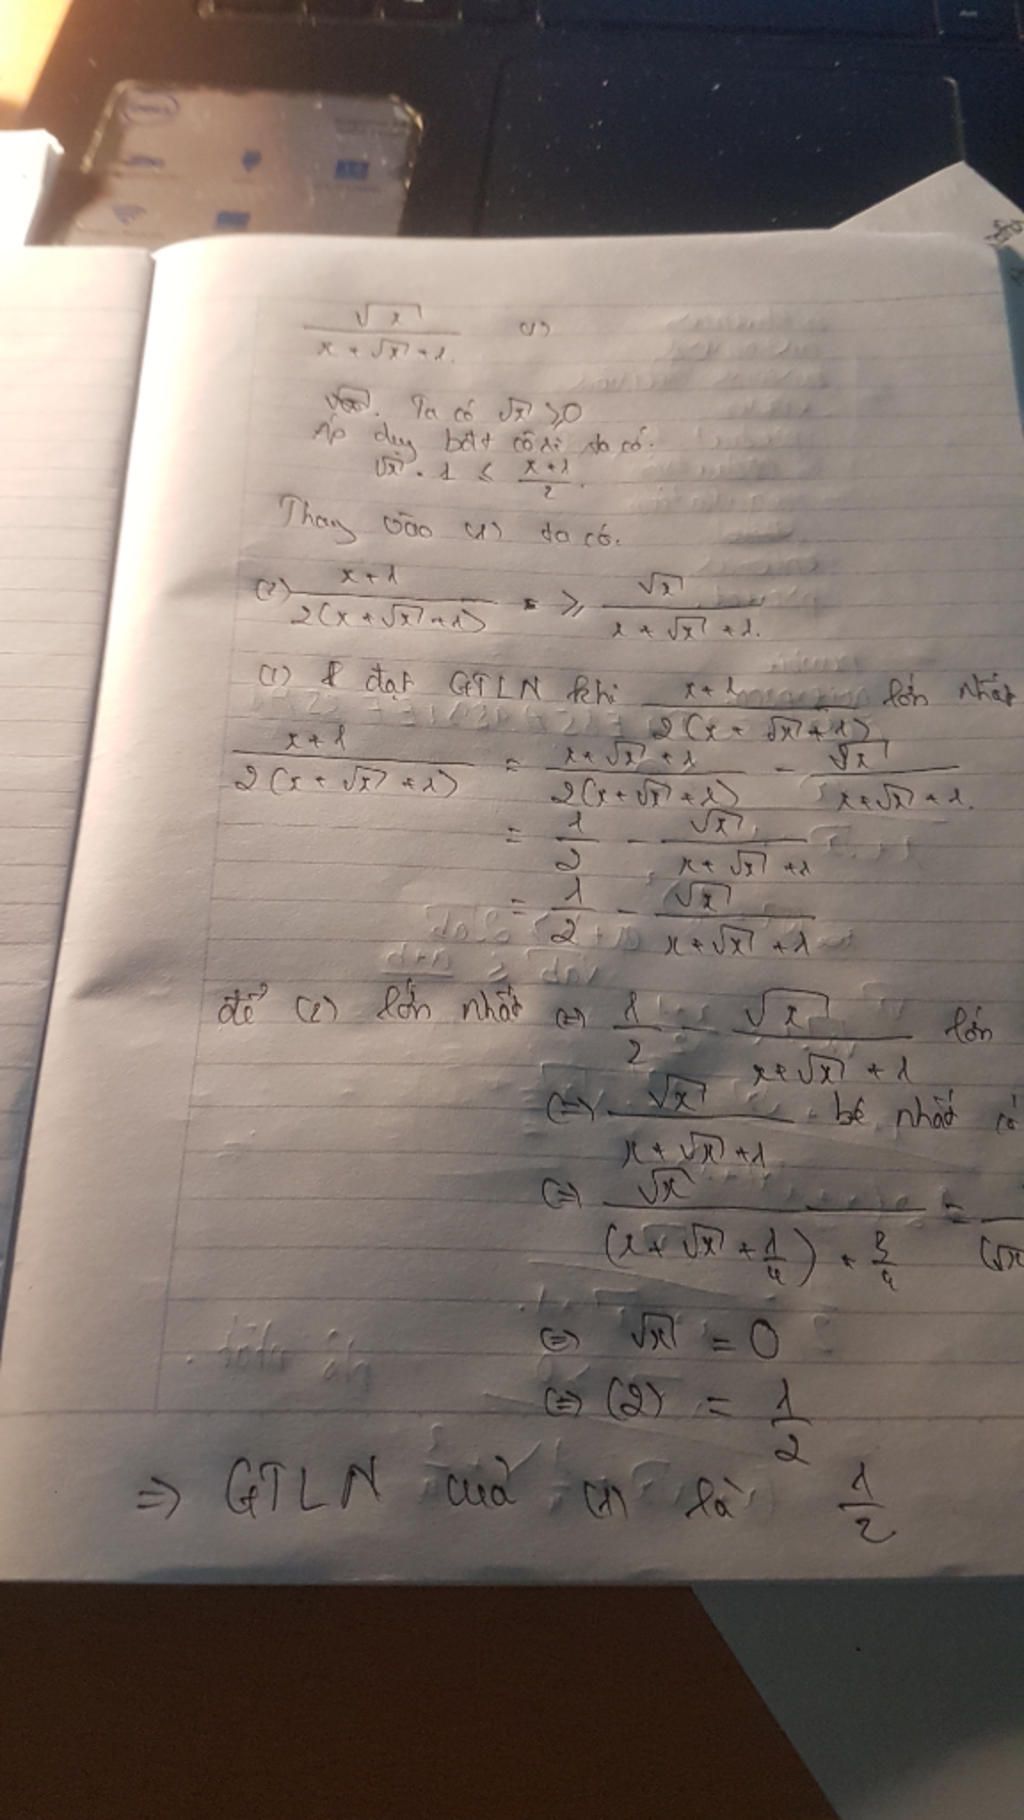 √x / (x + √x + 1) (1)
Ta có √x ≥ 0
Áp dụg bđt côsi ta có.
√x . 1 ≤ (x + 1) / 2.
Thay vào (1) ta có.
(2) (x + 1) / (2(x + √x + 1)) ≥ √x / (x + √x + 1).
(1) đạt GTLN khi (x + 1) / (2(x + √x + 1)) lớn nhất
(x + 1) / (2(x + √x + 1)) = (x + √x + 1) / (2(x + √x + 1)) - √x / (x + √x + 1).
= 1/2 - √x / (x + √x + 1)
= 1/2 - √x / (x + √x + 1)
để (2) lớn nhất (=) 1/2 - √x / (x + √x + 1) lớn
(=) √x / (x + √x + 1) bé nhất có
(=) √x / ((x + √x + 1/4) + 3/4) =
(=) √x = 0
(=) (2) = 1/2
=> GTLN của (1) là 1/2